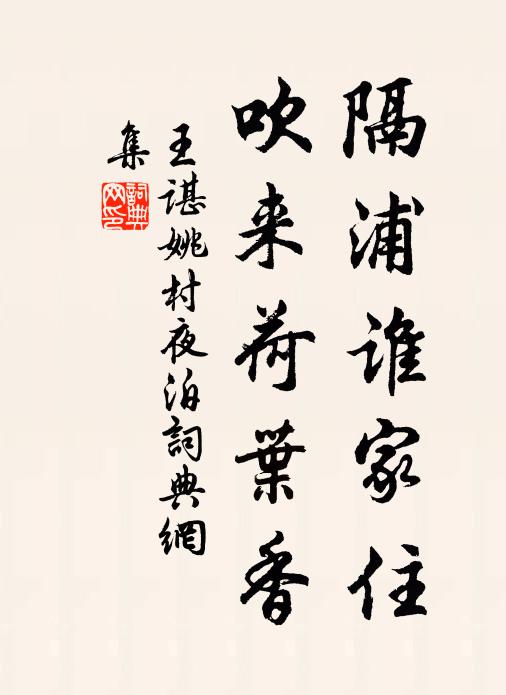 隔浦谁家住
吹来荷葉香
王谌姚村夜泊詞典網
集
詞典
网印